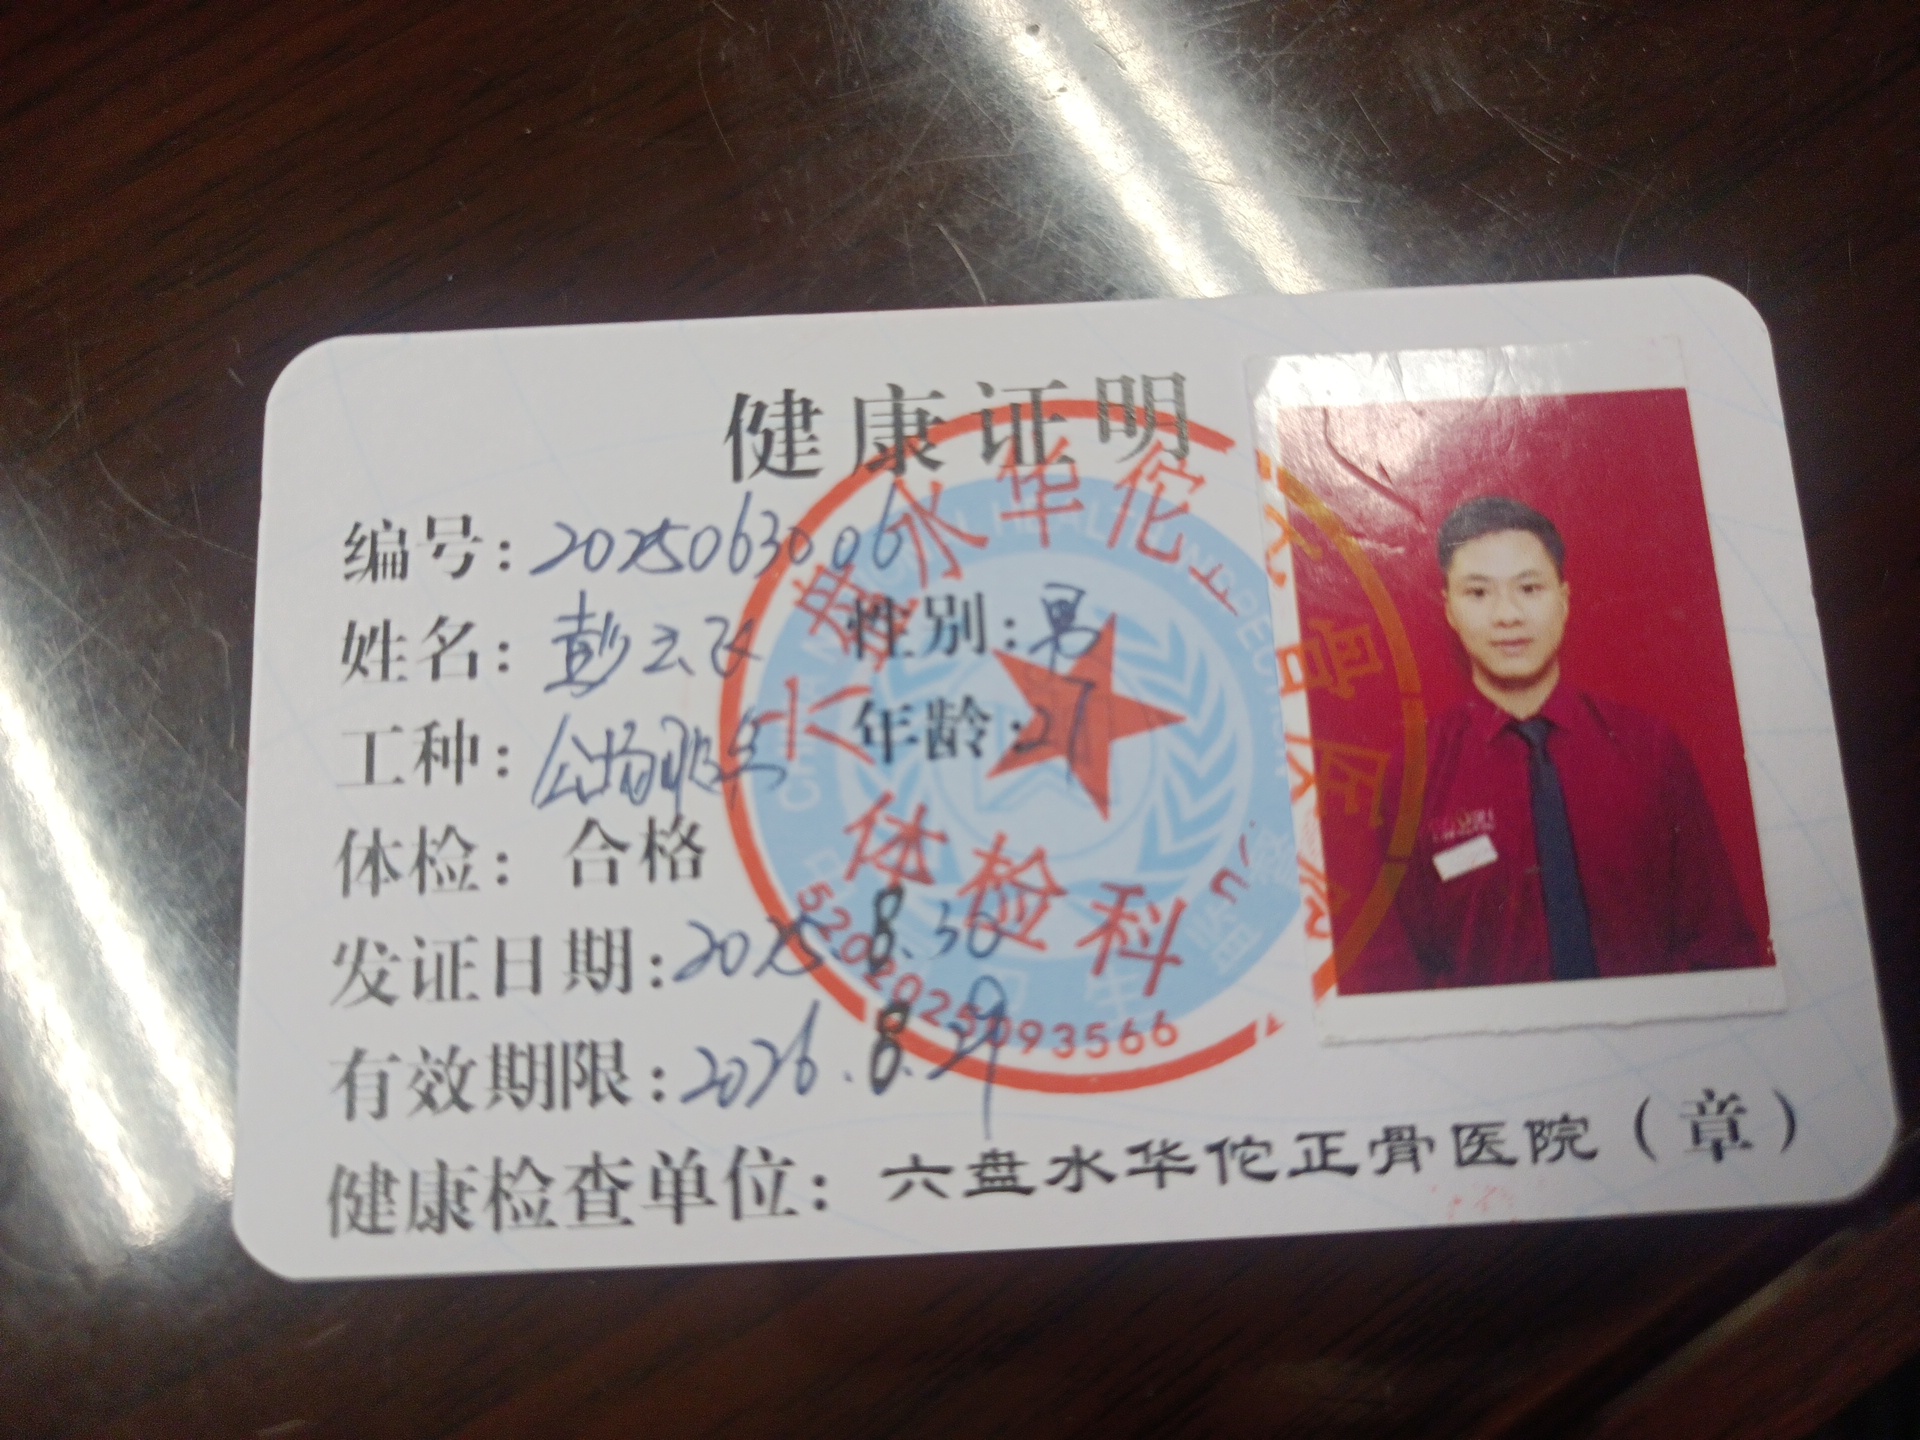 健康证明
编号：2025063006
姓名：彭云飞 性别：男
工种： 年龄：27
体检：合格
发证日期：2025.8.30
有效期限：2026.8.29
健康检查单位：六盘水华佗正骨医院（章）
六盘水华佗正骨医院
体检科
5202025093566